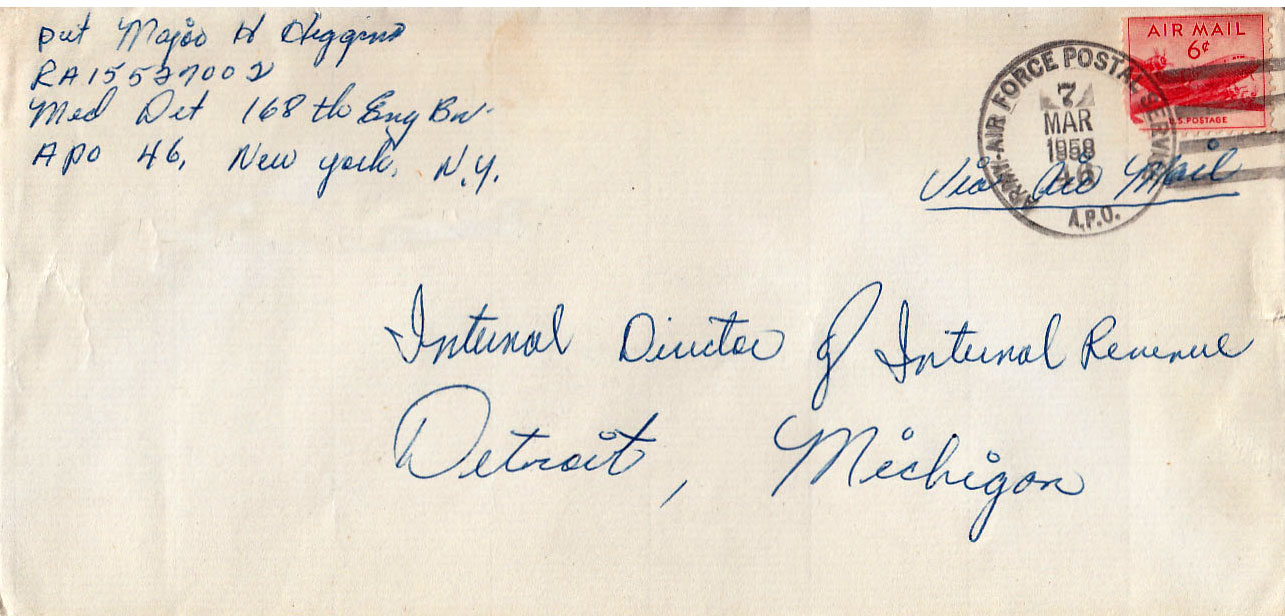 Pvt Major H Higgins
RA15527002
Med Det 168th Eng Bn
APO 46, New York, N.Y.
AIR MAIL
6¢
U.S. POSTAGE
ARMY-AIR FORCE POSTAL SERVICE
7
MAR
1958
A.P.O.
Via Air Mail
Internal Director of Internal Revenue
Detroit, Michigan